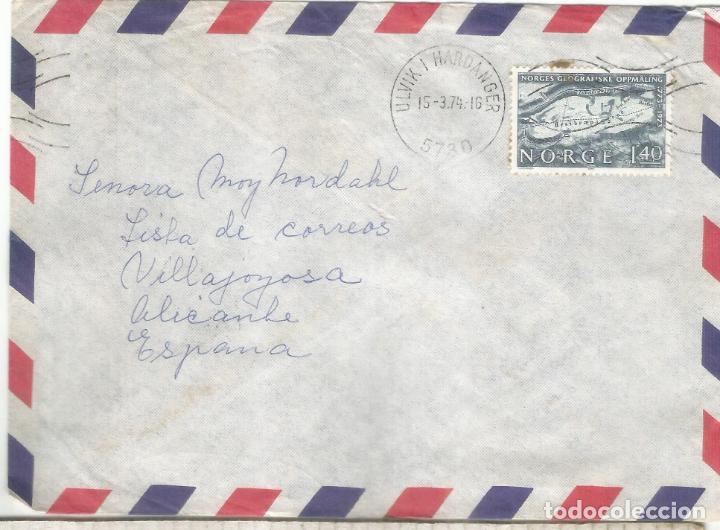 ULVIK I HARDANGER
15-3.74.-16
5730
NORGES GEOGRAFISKE OPPMÅLING
1773-1973
NORGE 1.40
Senora Moy Nordahl
Lista de correos
Villajoyosa
Alicante
España
todocoleccion